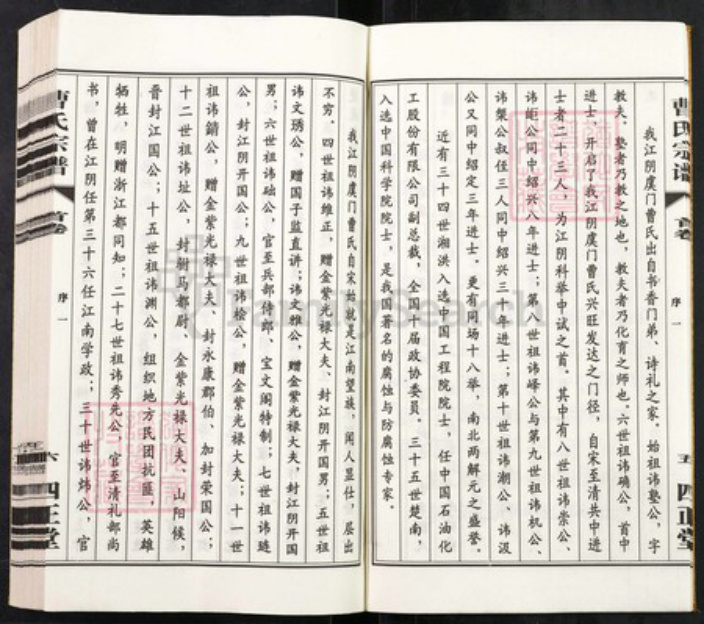 曹氏宗谱
首卷
序一
五
四正堂
我江阴虞门曹氏出自书香门弟、诗礼之家。始祖讳塾公，字
教夫。塾者乃教之地也，教夫者乃化育之师也。六世祖讳确公，首中
进士，开启了我江阴虞门曹氏兴旺发达之门径，自宋至清共中进
士者二十三人，为江阴科举中试之首。其中有八世祖讳崇公、
讳岠公同中绍兴八年进士；第八世祖讳峰公与第九世祖讳机公、
讳槩公叔侄三人同中绍兴三十年进士；第十世祖讳潮公、讳汲
公又同中绍定三年进士。更有同场十八举，南北两解元之盛誉。
近有三十四世湘洪入选中国工程院院士，任中国石油化
工股份有限公司副总裁，全国十届政协委员。三十五世楚南，
入选中国科学院院士，是我国著名的腐蚀与防腐蚀专家。
我江阴虞门曹氏自宋始就是江南望族，闻人显仕，层出
不穷。四世祖讳维正，赠金紫光禄大夫、封江阴开国男；五世祖
讳文琇公，赠国子监直讲；讳文雅公，赠金紫光禄大夫，封江阴开国
男；六世祖讳础公，官至兵部侍郎、宝文阁特制；七世祖讳琏
公，封江阴开国公；九世祖讳桧公，赠金紫光禄大夫；十一世
祖讳錥公，赠金紫光禄大夫、封永康郡伯、加封荣国公；
十二世祖讳址公，封驸马都尉、金紫光禄大夫、山阳候，
晋封江国公；十五世祖讳渊公，组织地方民团抗匪，英雄
牺牲，明赠浙江都同知；二十七世祖讳秀先公，官至清礼部尚
书，曾在江阴任第三十六任江南学政；三十世讳炜公，官
曹氏宗谱
首卷
序一
六
四正堂
FamilySearch